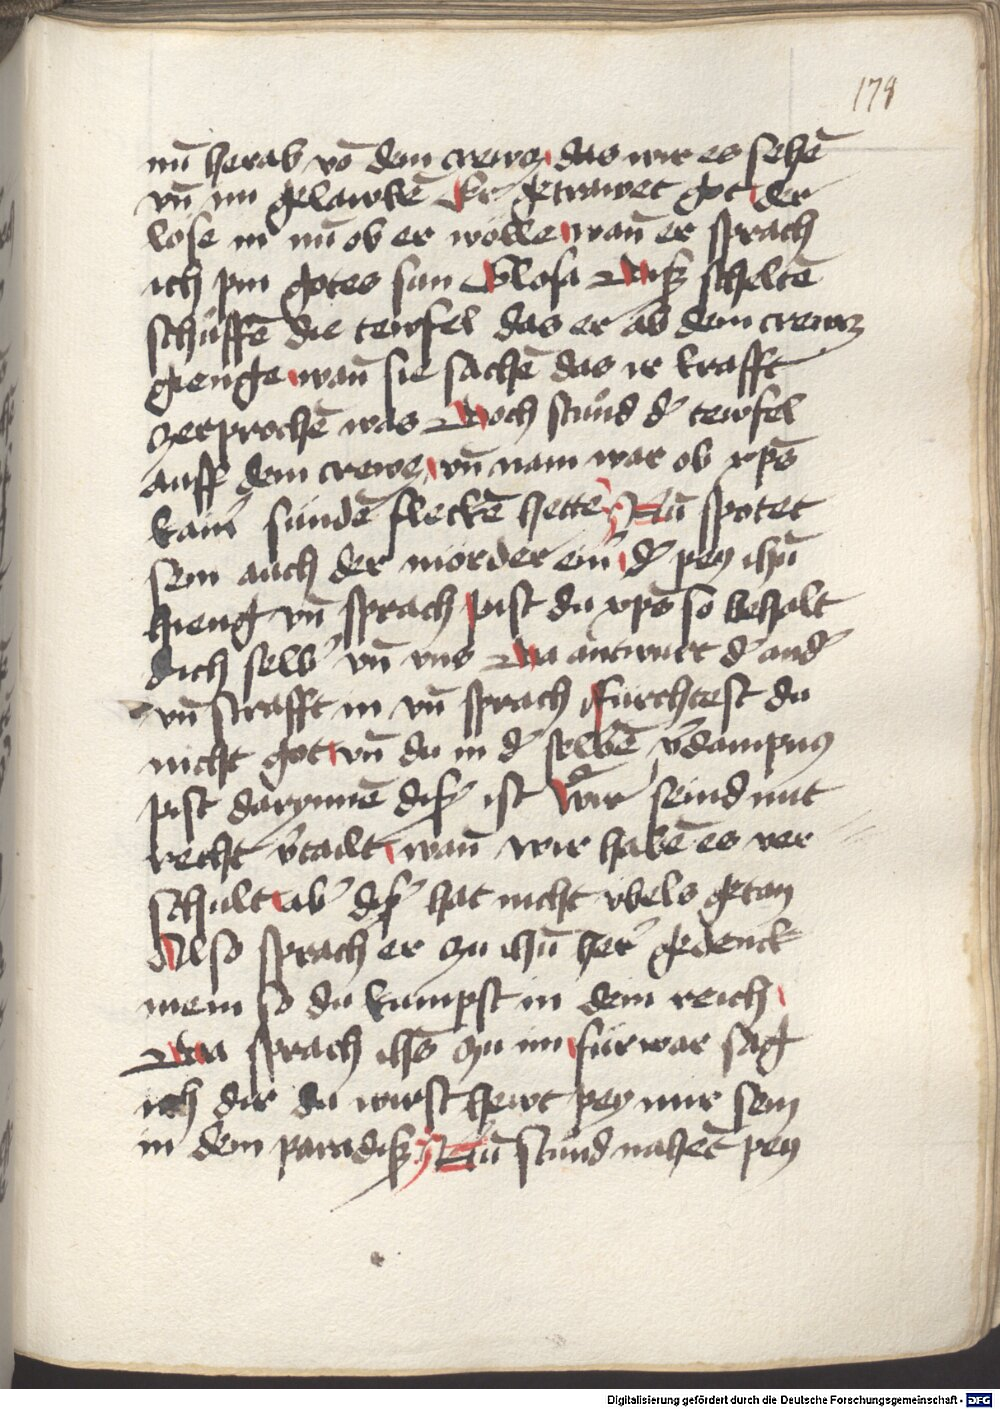 178
nū herab vō dem crewcz das wir es sehē
vn̄ im gelawbē Er getrawet got der
löse in nū ob er wölle wan̄ er sprach
ich pin gotes sun Glosa Disz scheltē
schůffē die tewfel das er ab dem crewcz
gienge wan̄ sie sachē das ir krafft
zerprochē was Doch stůnd d̕ tewfel
auff dem crewcz vn̄ nam war ob xp̄s
kain̕ sündē fleckē hette Nū spotet
sein auch der mörder ein̕ d̕ pey ihū
hieng vn̄ sprach pist du xp̄s so behalt
dich selb̕ vn̄ vns Da antwurt d̕ and̕
vn̄ strafft in vn̄ sprach fürchtest du
nicht got vn̄ du in d̕ selbē v̕dampnus
pist darynnē dis̕ ist Wir seind mit
recht v̕tailt wan̄ wir habē es ver
schult ab̕ dis̕ hat nicht vbels getan
Also sprach er zu ihū her̕ gedenck
mein so du kumpst in dein reich
Da sprach ihs̄ zu im fürwar sag
ich dir du wirst hewt pey mir sein
in dem paradisz Nū stůnd nahet pey
Digitalisierung gefördert durch die Deutsche Forschungsgemeinschaft - DFG